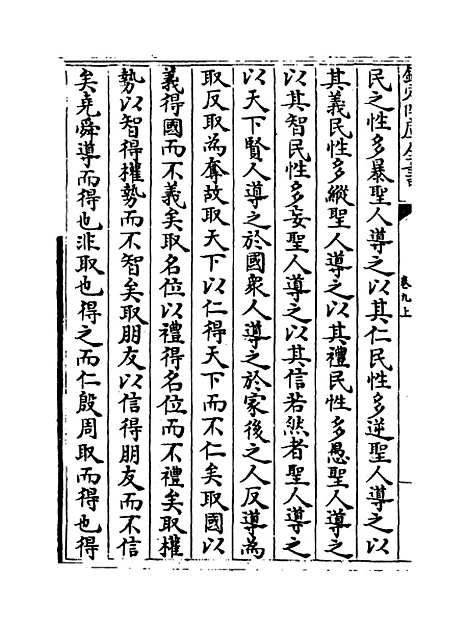 欽定四庫全書
卷九上
民之性多暴聖人導之以其仁民性多逆聖人導之以
其義民性多縱聖人導之以其禮民性多愚聖人導之
以其智民性多妄聖人導之以其信若然者聖人導之
以天下賢人導之於國衆人導之於家後之人反導為
取反取為奪故取天下以仁得天下而不仁矣取國以
義得國而不義矣取名位以禮得名位而不禮矣取權
勢以智得權勢而不智矣取朋友以信得朋友而不信
矣堯舜導而得也非取也得之而仁殷周取而得也得